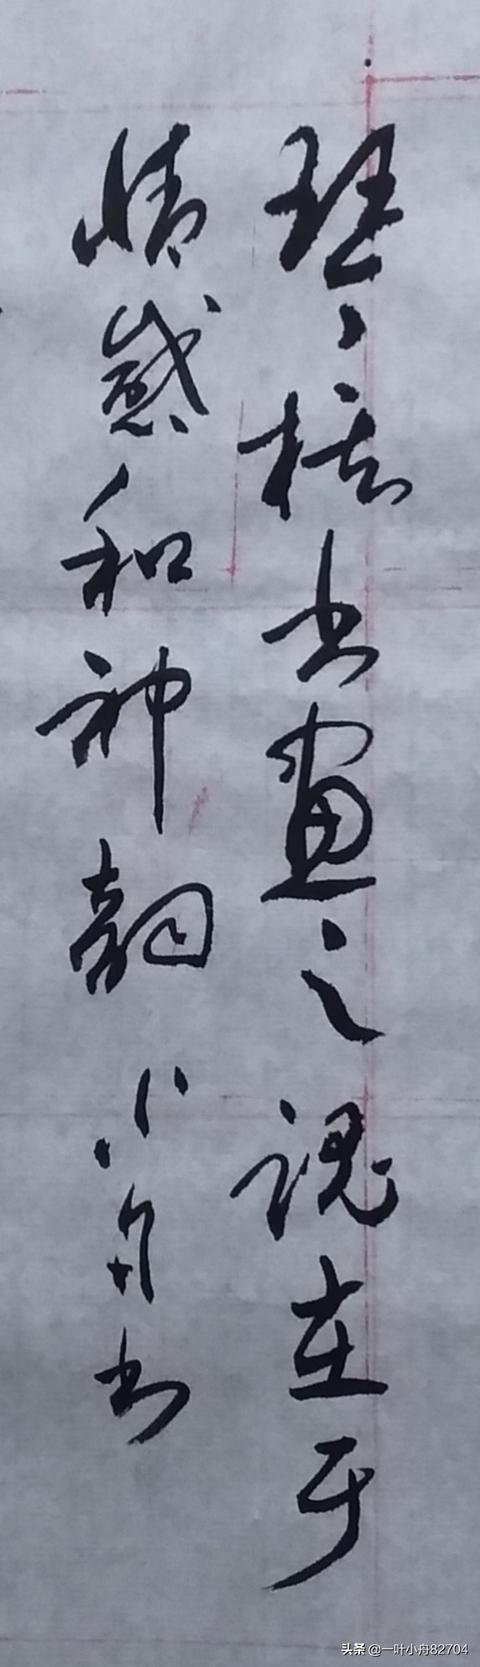 琴、棋书画之魂在于
情感和神韵 小舟书
头条 @一叶小舟82704